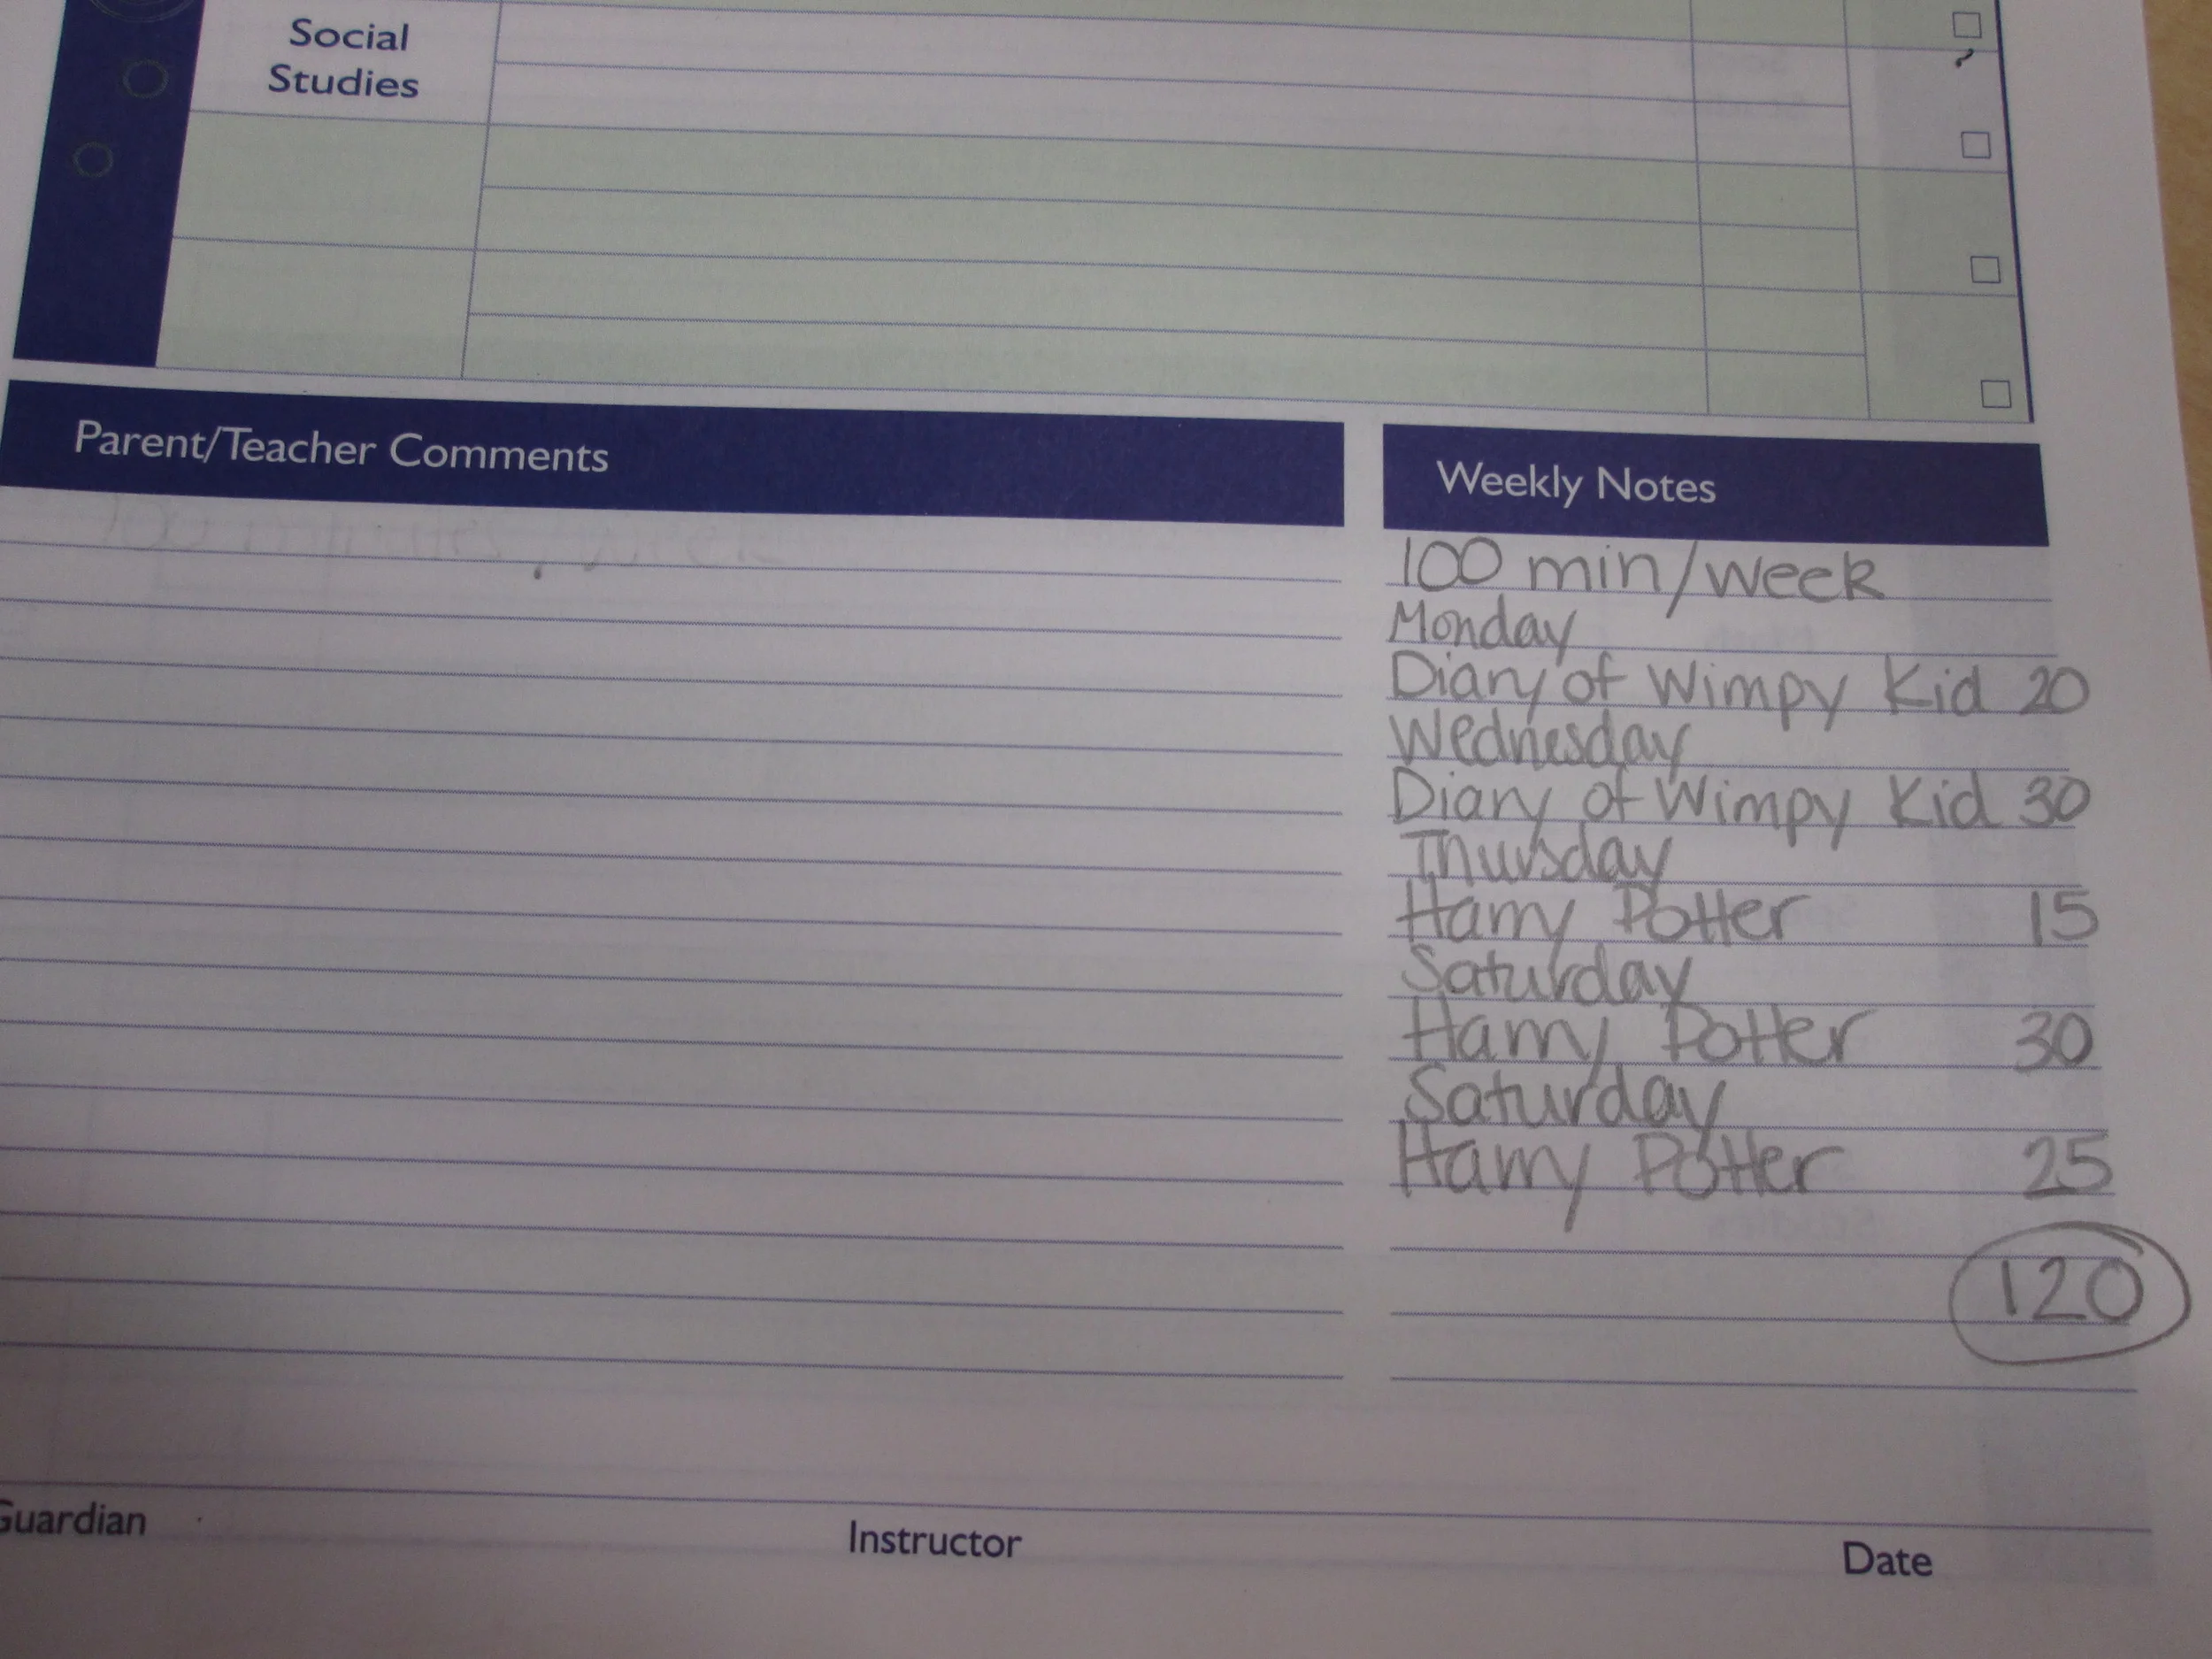 Social
Studies
Parent/Teacher Comments
Weekly Notes
100 min/week
Monday
Diary of Wimpy Kid 20
Wednesday
Diary of Wimpy Kid 30
Thursday
Harry Potter 15
Saturday
Harry Potter 30
Saturday
Harry Potter 25
120
Guardian
Instructor
Date